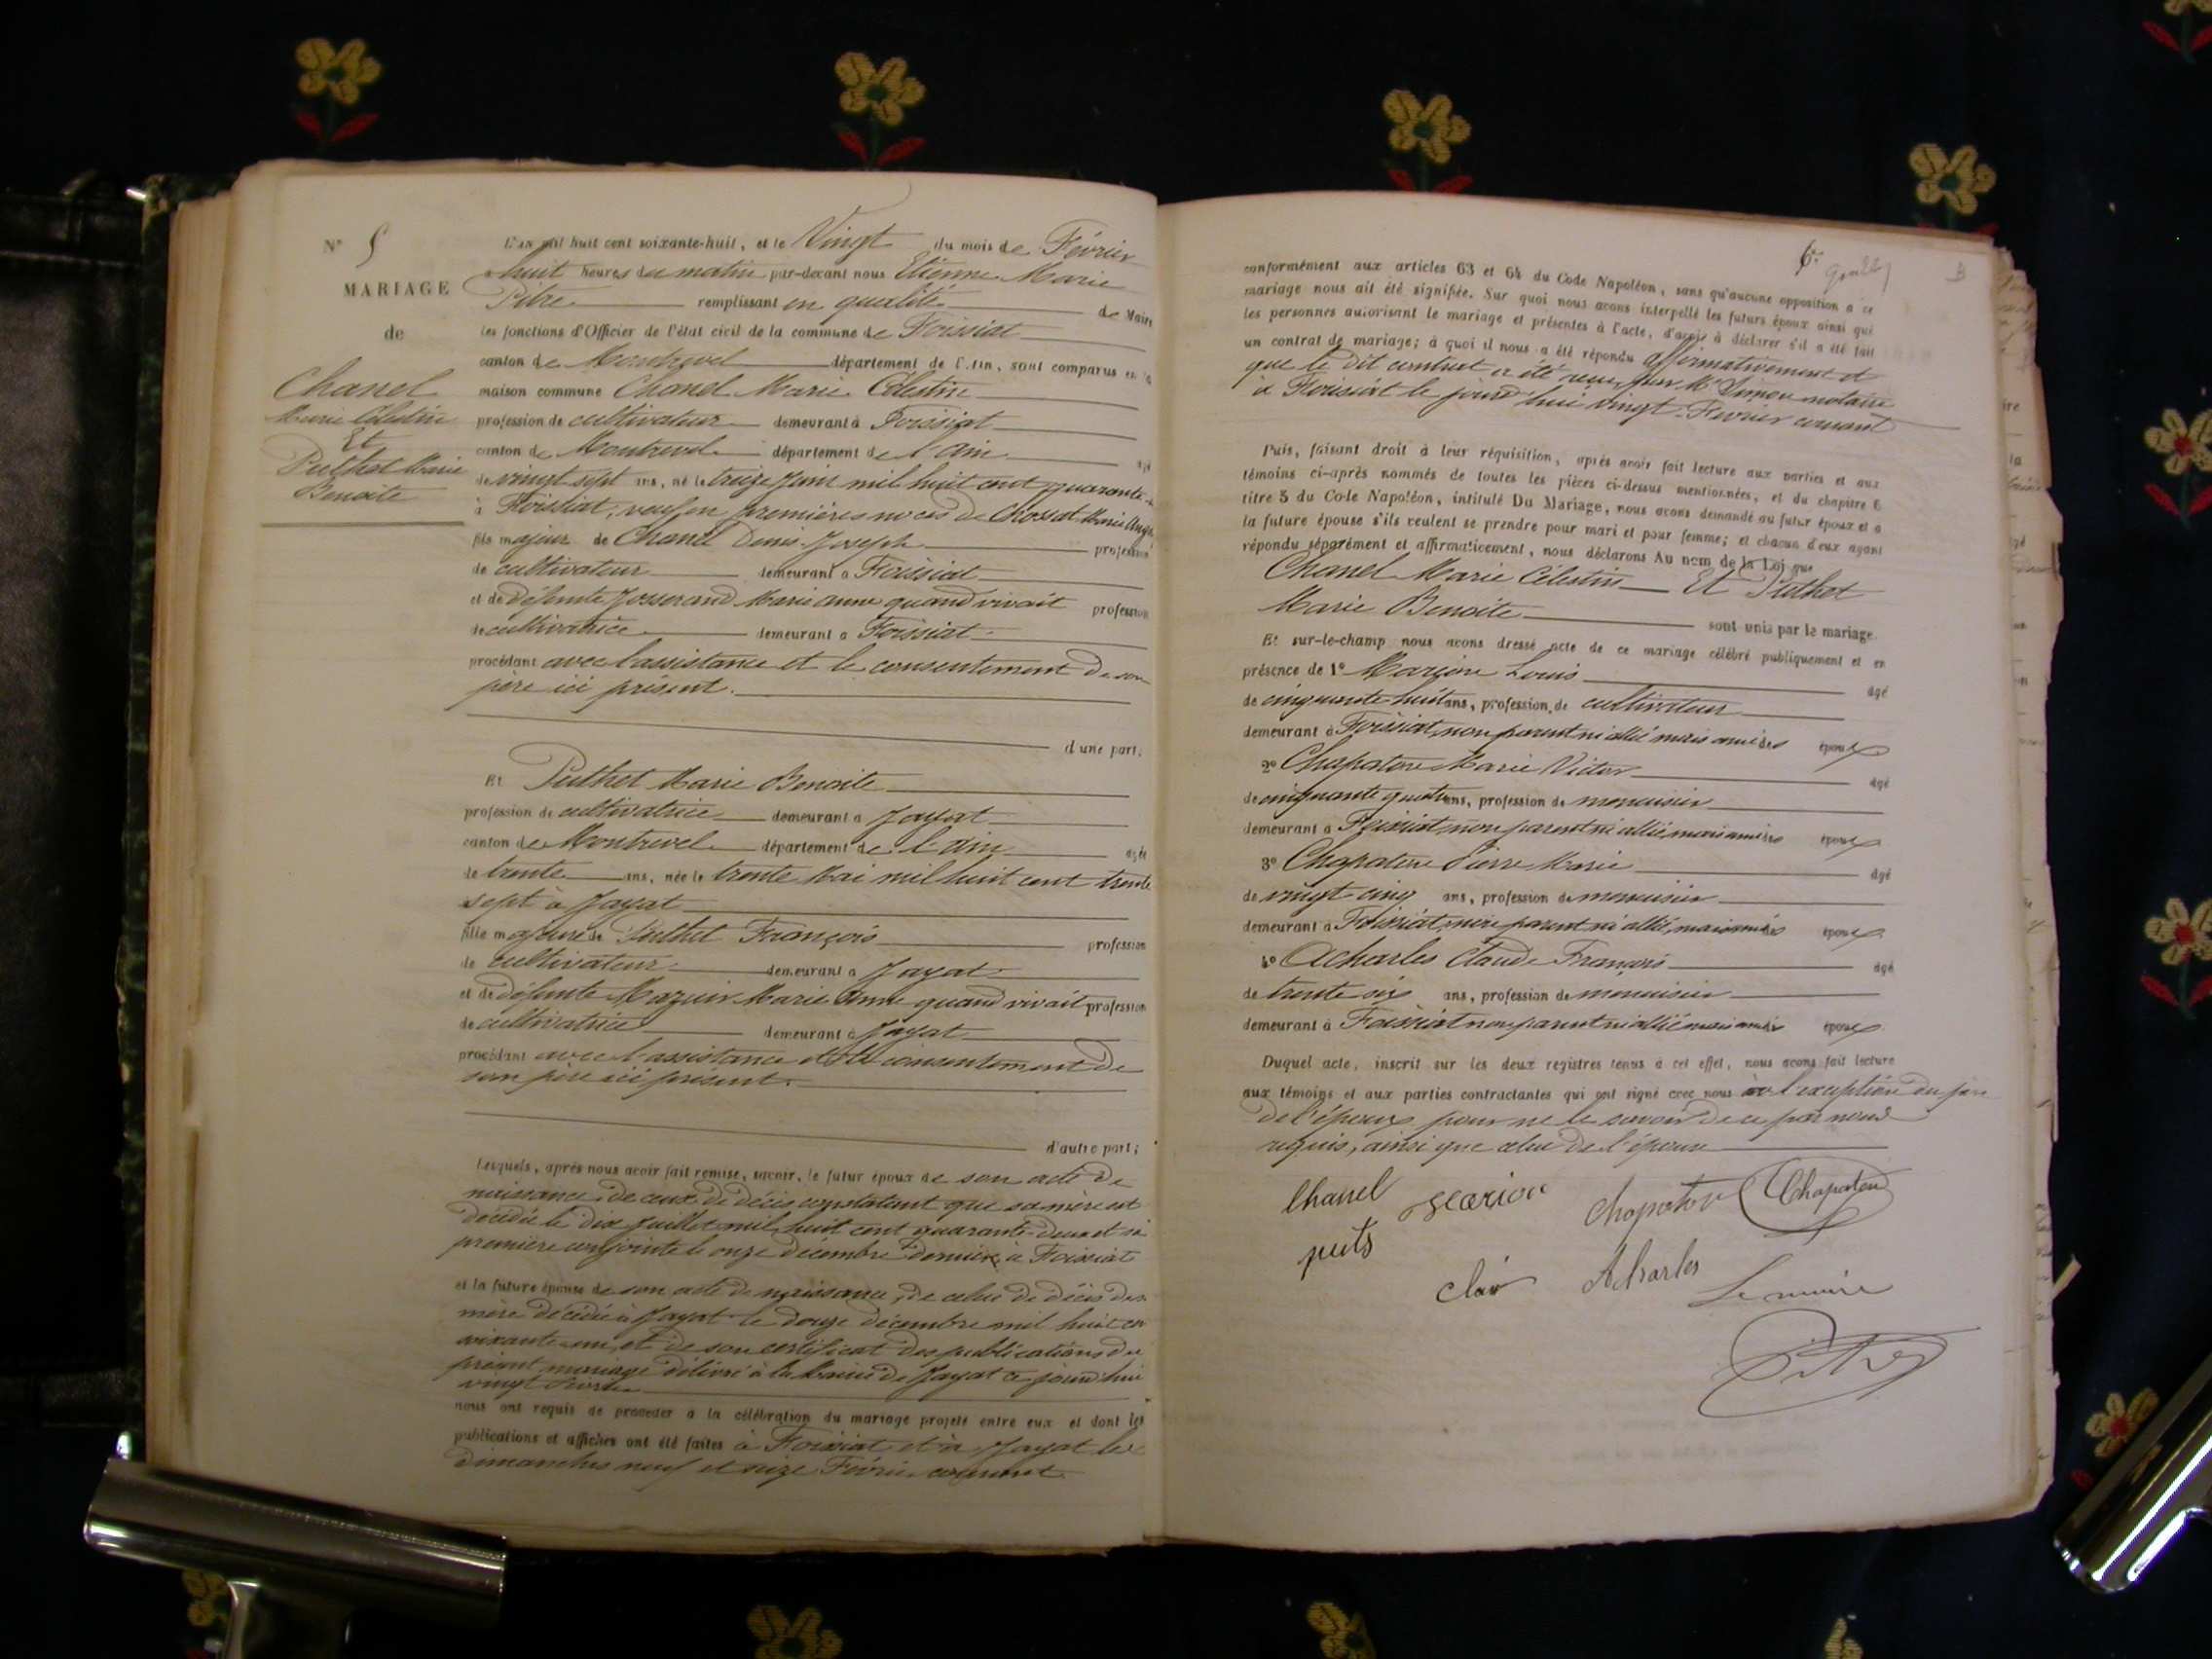 N° 5
MARIAGE
de
Chanel
Marie Célestin
Et
Puthet Marie
Benoite
L'an mil huit cent soixante-huit, et le Vingt du mois de Février
à huit heures du matin par-devant nous Etienne Marie
Pitre remplissant en qualité de Maire
les fonctions d'Officier de l'état civil de la commune de Foissiat
canton de Montrevel département de l'Ain, sont comparus en la
maison commune Chanel Marie Célestin
profession de cultivateur demeurant à Foissiat
canton de Montrevel département de l'Ain agé
de vingt sept ans, né le treize Juin mil huit cent quarante
à Foissiat, veuf en premières noces de Chossat Marie
fils majeur de Chanel Denis Joseph profession
de cultivateur demeurant à Foissiat
et de défunte Josserand Marie Anne quand vivait profession
de cultivatrice demeurant à Foissiat
procédant avec l'assistance et le consentement de son
père ici présent.
d'une part,
Et Puthet Marie Benoite
profession de cultivatrice demeurant à Jayat
canton de Montrevel département de l'Ain agée
de trente ans, née le trente Mai mil huit cent trente
sept à Jayat
fille majeure de Puthet François profession
de cultivateur demeurant à Jayat
et de défunte Mazuir Marie Anne quand vivait profession
de cultivatrice demeurant à Jayat
procédant avec l'assistance et le consentement de
son père ici présent.
d'autre part;
Lesquels, après nous avoir fait remise, savoir, le futur époux de son acte de
naissance, de ceux de décès constatant que sa mère est
décédée le dix Juillet mil huit cent quarante-deux et sa
première conjointe le onze décembre dernier à Foissiat
et la future épouse de son acte de naissance, de celui de décès de sa
mère décédée à Jayat le douze décembre mil huit cent
soixante-un, et de son certificat des publications du
présent mariage délivré à la Mairie de Jayat ce jourd'hui
vingt Février
nous ont requis de procéder à la célébration du mariage projeté entre eux et dont les
publications et affiches ont été faites à Foissiat et à Jayat les
dimanches neuf et seize Février courant
6e
B
conformément aux articles 63 et 64 du Code Napoléon, sans qu'aucune opposition à ce
mariage nous ait été signifiée. Sur quoi nous avons interpellé les futurs époux ainsi que
les personnes autorisant le mariage et présentes à l'acte, d'avoir à déclarer s'il a été fait
un contrat de mariage; à quoi il nous a été répondu affirmativement et
que le dit contrat a été reçu par Me Simon notaire
à Foissiat le jourd'hui vingt Février courant
Puis, faisant droit à leur réquisition, après avoir fait lecture aux parties et aux
témoins ci-après nommés de toutes les pièces ci-dessus mentionnées, et du chapitre 6
titre 5 du Code Napoléon, intitulé Du Mariage, nous avons demandé au futur époux et à
la future épouse s'ils veulent se prendre pour mari et pour femme; et chacun d'eux ayant
répondu séparément et affirmativement, nous déclarons Au nom de la Loi que
Chanel Marie Célestin Et Puthet
Marie Benoite sont unis par le mariage.
Et sur-le-champ nous avons dressé acte de ce mariage célébré publiquement et en
présence de 1° Marion Louis agé
de cinquante huit ans, profession de cultivateur
demeurant à Foissiat, non parent ni allié mais ami des époux
2° Chapaton Marie Victor agé
de cinquante quatre ans, profession de menuisier
demeurant à Foissiat, non parent ni allié, mais ami des époux
3° Chapaton Pierre Marie agé
de vingt cinq ans, profession de menuisier
demeurant à Foissiat, non parent ni allié, mais ami des époux
4° Acharles Claude François agé
de trente six ans, profession de menuisier
demeurant à Foissiat non parent ni allié mais ami des époux
Duquel acte, inscrit sur les deux registres tenus à cet effet, nous avons fait lecture
aux témoins et aux parties contractantes qui ont signé avec nous à l'exception du père
de l'époux pour ne le savoir de ce par nous
requis, ainsi que celui de l'épouse
Chanel Marion Chapaton Chapaton
puts
Clair Acharles Le maire
Pitre